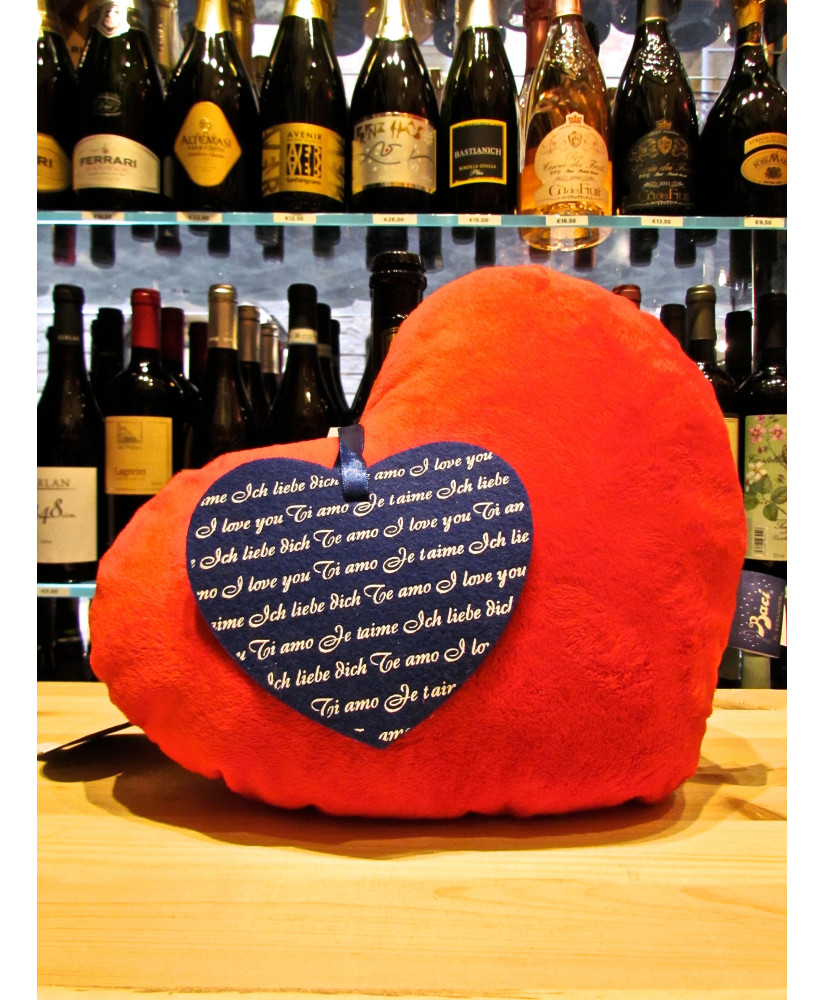 FERRARI
ALTEMASI
AVENIR
BASTIANICH
€12,50
€26,00
€15,00
€18,50
€13,50
€9,50
Lagrein
RLAN
48
Baci
ime Ich liebe dich Te amo I love you
I love you Ti amo Je t aime Ich liebe
Ich liebe dich Te amo I love you Ti am
mo I love you Ti amo Je t aime Ich lie
aime Ich liebe dich Te amo I love you
u Ti amo Je t aime Ich liebe dich
Ich liebe dich Te amo I lo
Ti amo Je t aim
Te amo